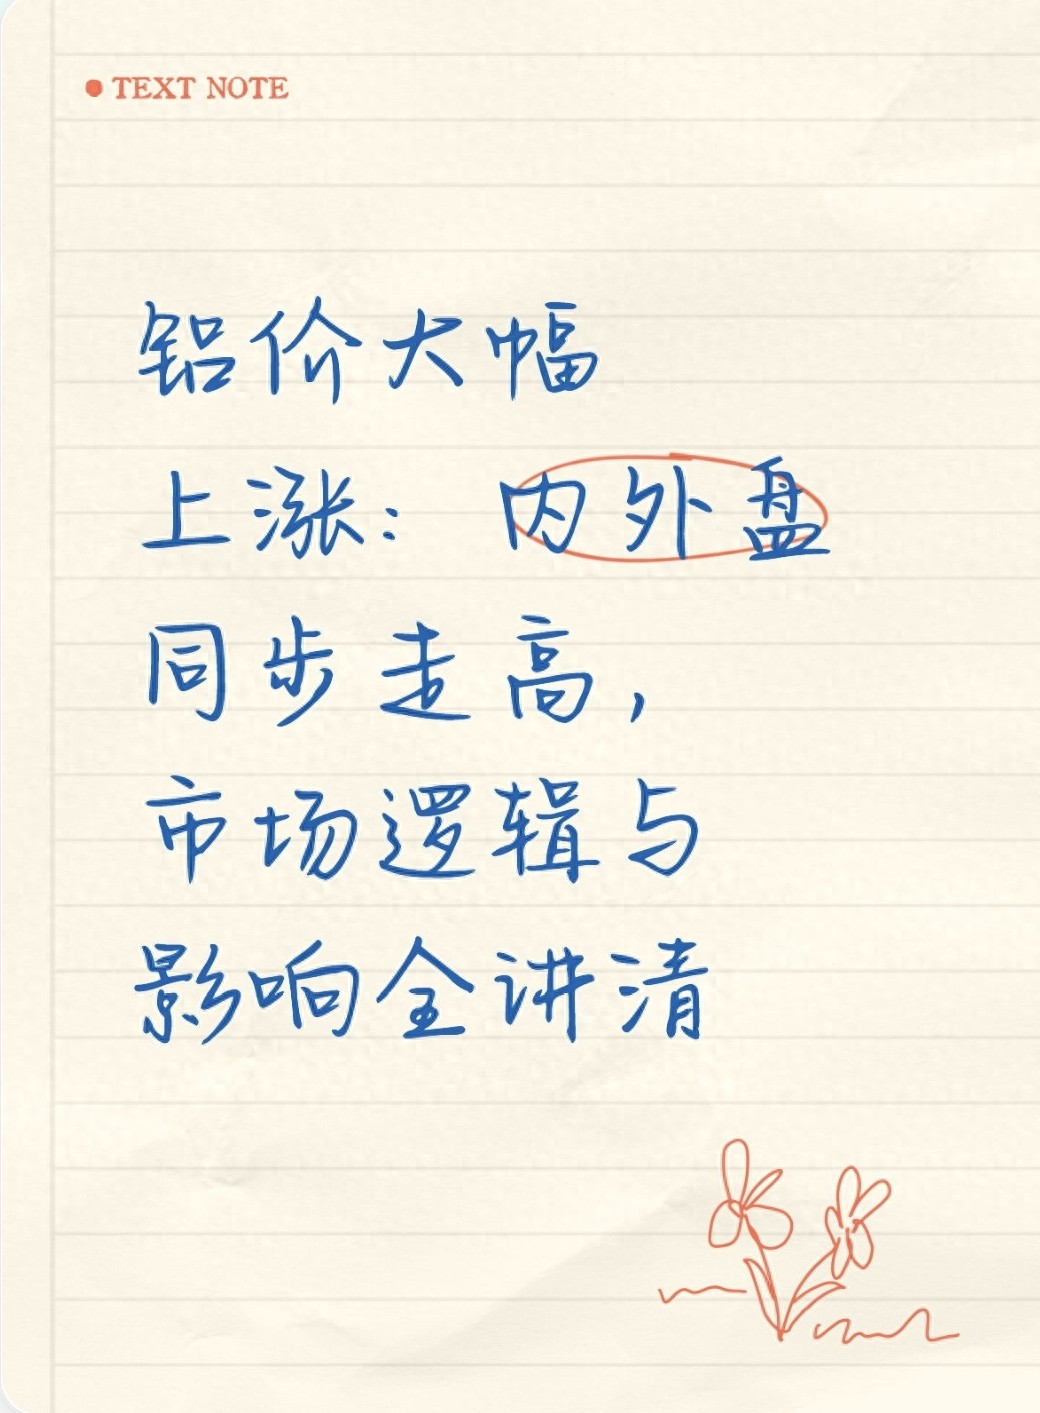 TEXT NOTE
铝价大幅
上涨：内外盘
同步走高，
市场逻辑与
影响全讲清